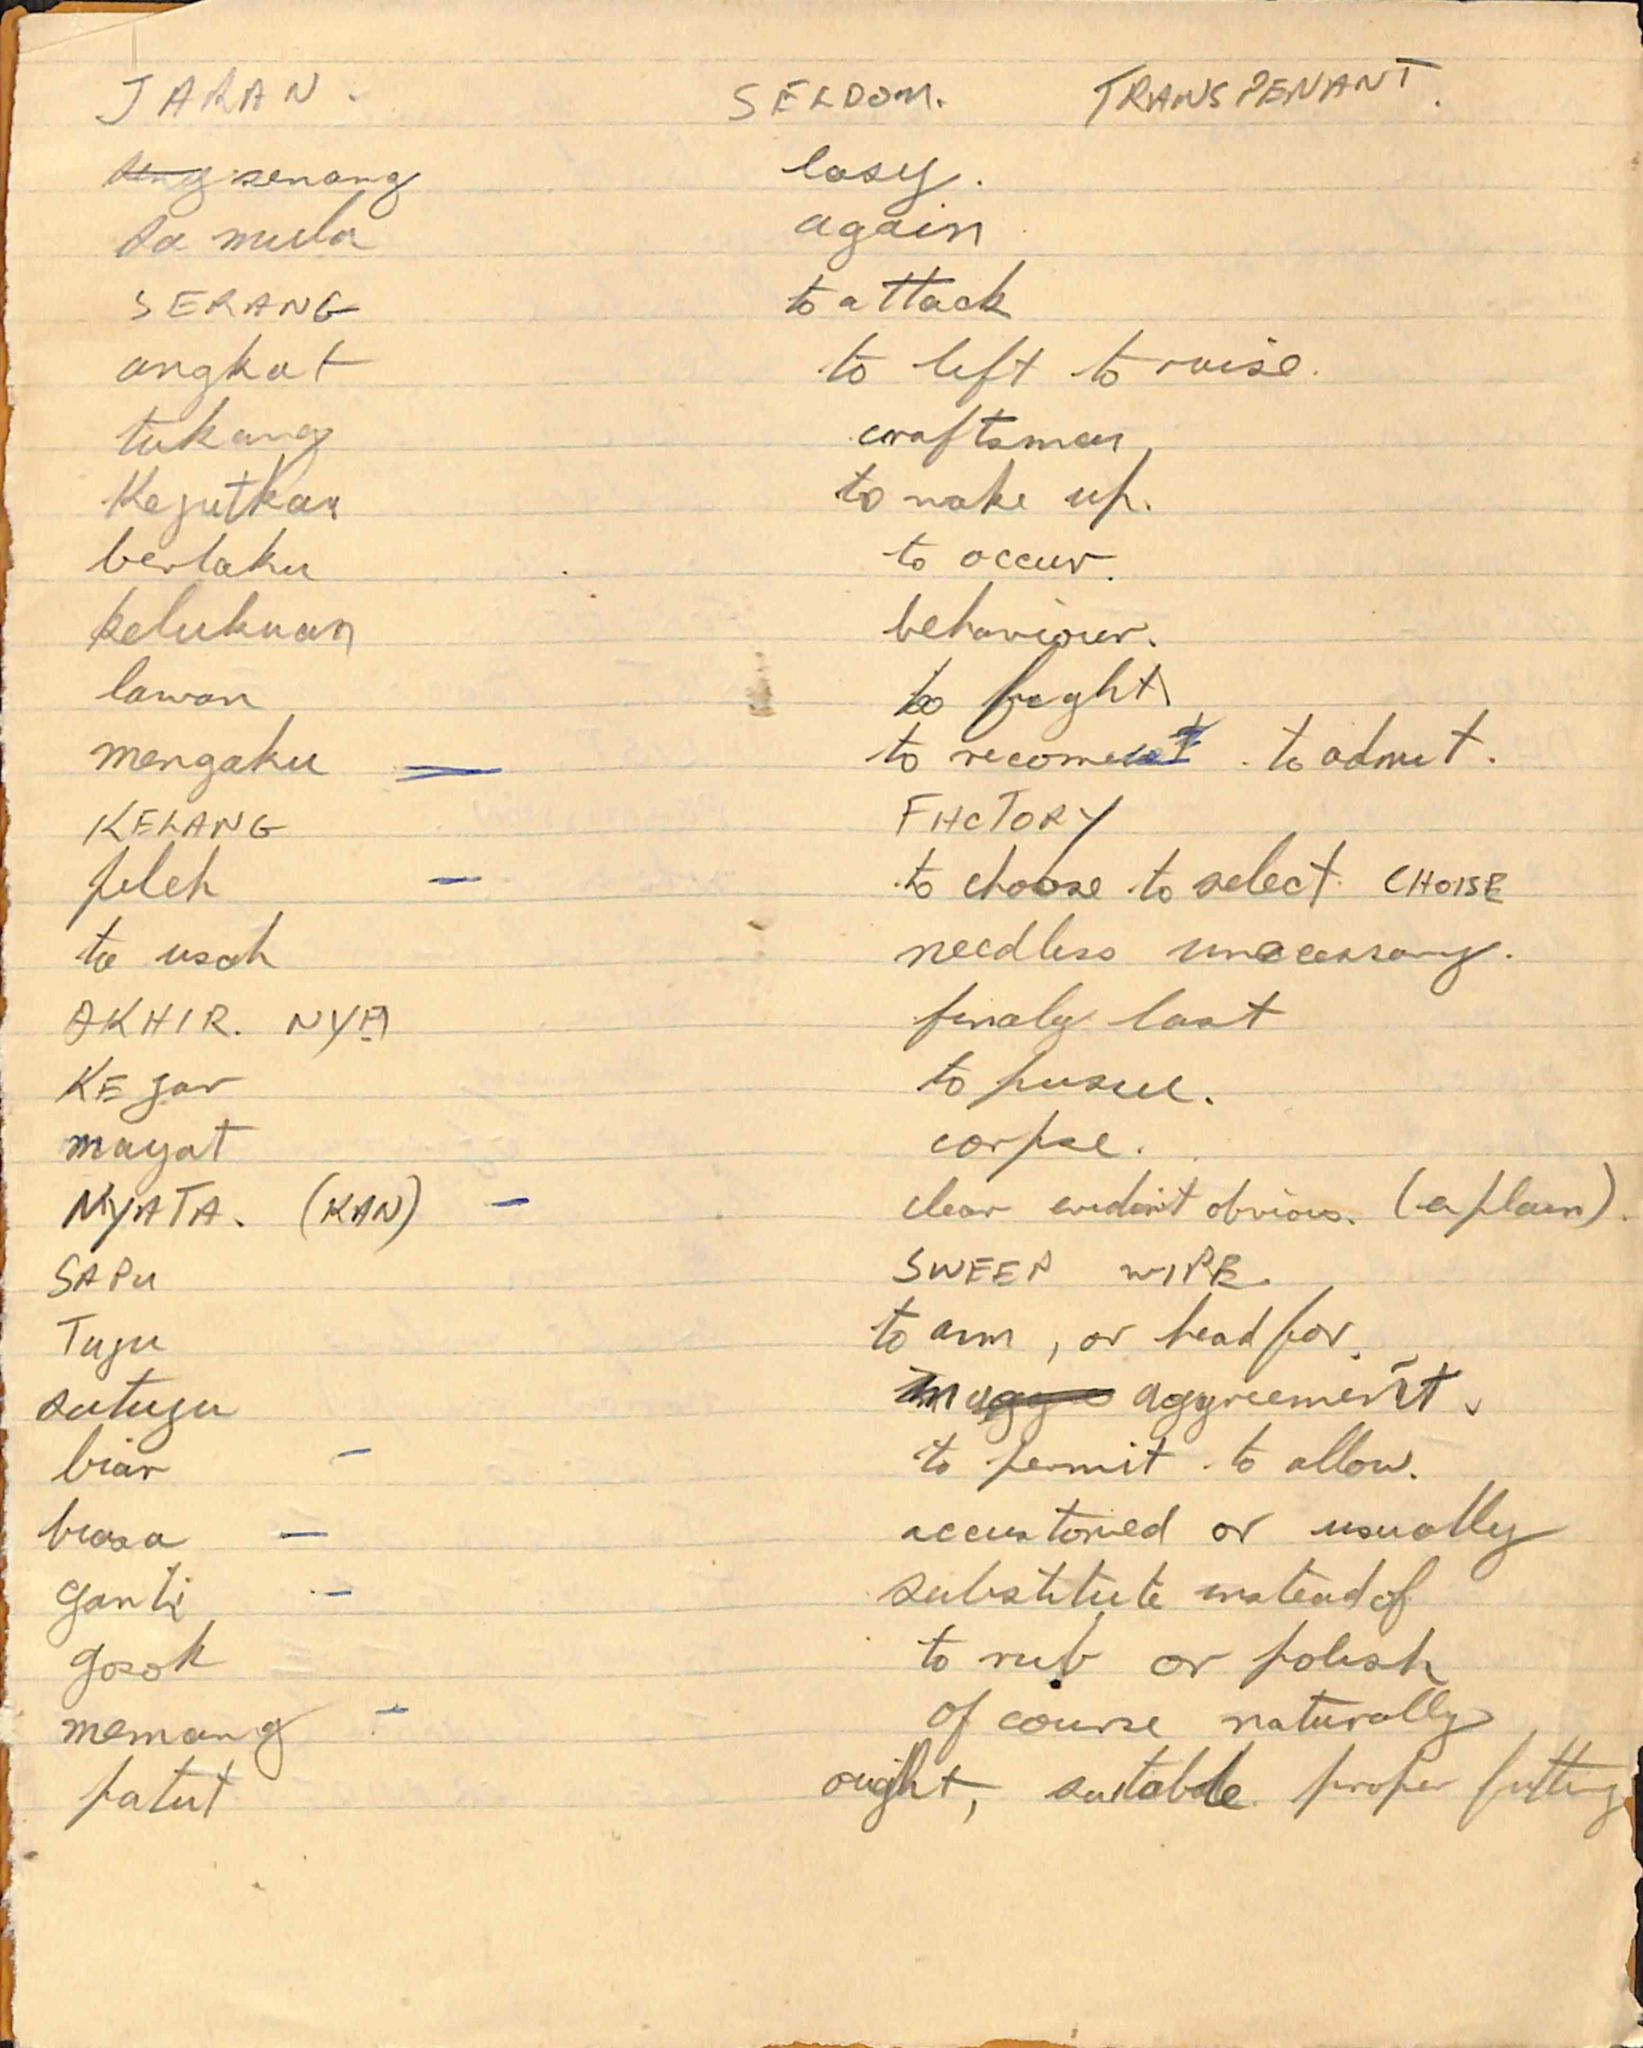 JARAN. SELDOM. TRANSPENANT.
senang easy.
sa mula again
SERANG to attack
angkat to left to raise.
tukang craftsman
Kejutkan to wake up.
berlaku to occur.
kelukuan behaviour.
lawan to fight
mengaku — to to admit.
KELANG FACTORY
pileh – to choose to select. CHOISE
ta usah needless unecessary.
AKHIR. NYA finaly last
KEjar to pusue.
mayat corpse.
NYATA. (KAN) – clear evident obvious. (explain).
SAPU SWEEP WIPE.
Tuju to aim, or head for.
satuju aggreement.
biar – to permit to allow.
biasa – accustomed or usually
ganti – substitute instead of
gosok to rub or polish
memang – of course naturally
patut ought, suitable proper fitting